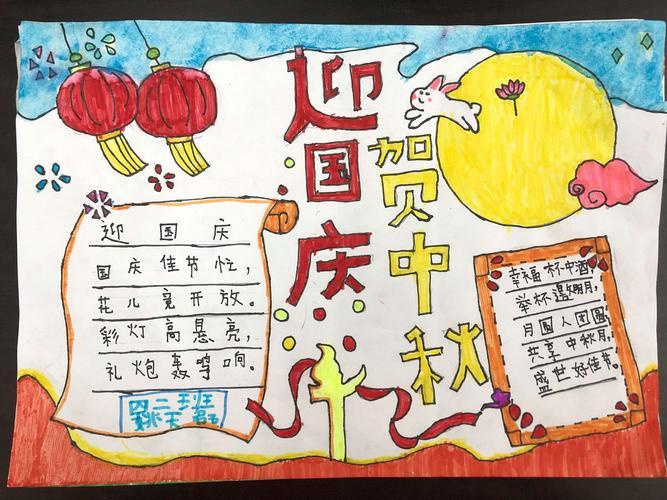 迎国庆
贺中秋
迎国庆
国庆佳节忙，
花儿竞开放。
彩灯高悬亮，
礼炮轰鸣响。
四二班
姚天
幸福杯中酒，
举杯邀明月，
月圆人团圆
共享中秋月，
盛世好佳节。